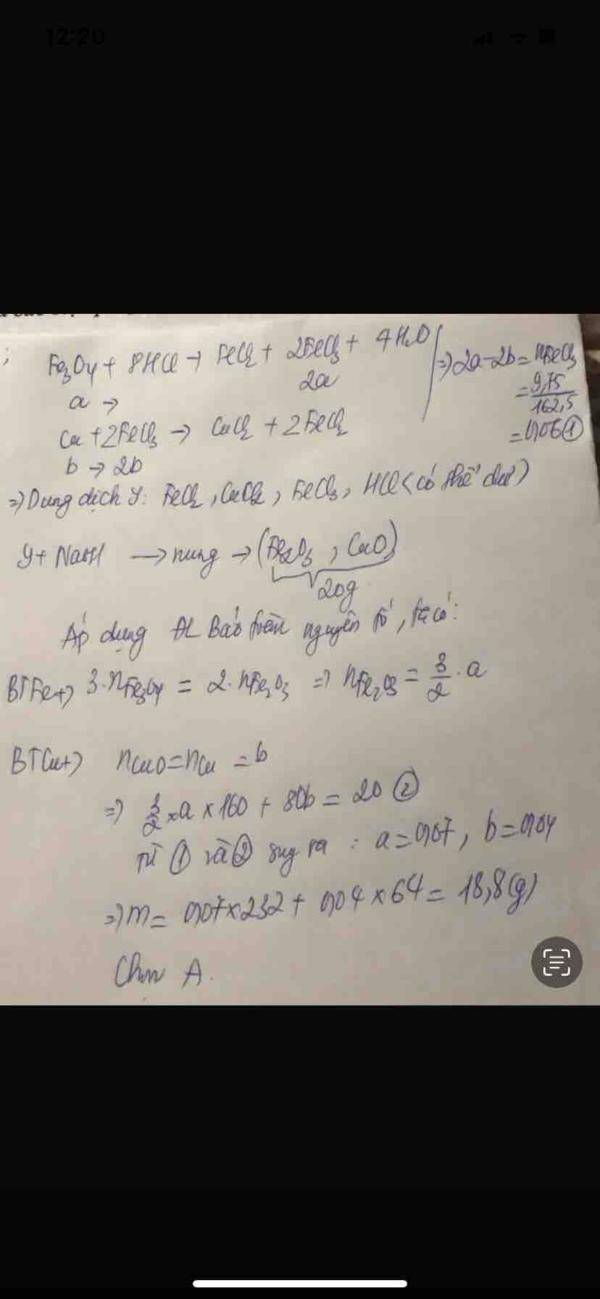 12:20
;
Fe3O4 + 8HCl → FeCl2 + 2FeCl3 + 4H2O
a → 2a
Cu + 2FeCl3 → CuCl2 + 2FeCl2
b → 2b
=> 2a-2b = nFeCl3
= 9,75/162,5
= 0,06 ①
=> Dung dịch Y: FeCl2, CuCl2, FeCl3, HCl (có thể dư)
Y + NaOH → nung → (Fe2O3, CuO)
20g
Áp dụng ĐL Bảo toàn nguyên tố, ta có:
BTFe+) 3.nFe3O4 = 2.nFe2O3 => nFe2O3 = 3/2 . a
BTCu+) nCuO = nCu = b
=> 3/2 x a x 160 + 80b = 20 ②
Từ ① và ② suy ra : a = 0,07, b = 0,04
=> m = 0,07 x 232 + 0,04 x 64 = 18,8 (g)
Chọn A.